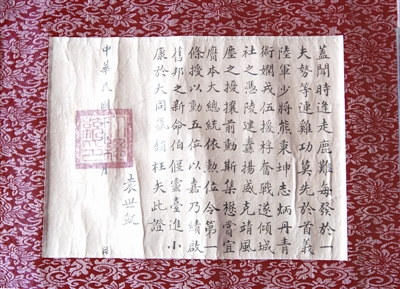 蓋聞時逢走鹿難每發於一
夫勢等連雞功莫先於首義
陸軍少將熊秉坤志炳丹青
術嫻戎伍援桴眷戰遂傾城
社之憑陵建纛揚威克靖風
塵之擾攘前勳斯集懋賞宜
膺本大總統依勳位令第一
條授以勳五位以嘉乃績啟
舊邦之新命伯偃靈臺進小
康於大同枉矢此證
袁世凱
中華民國 月 日